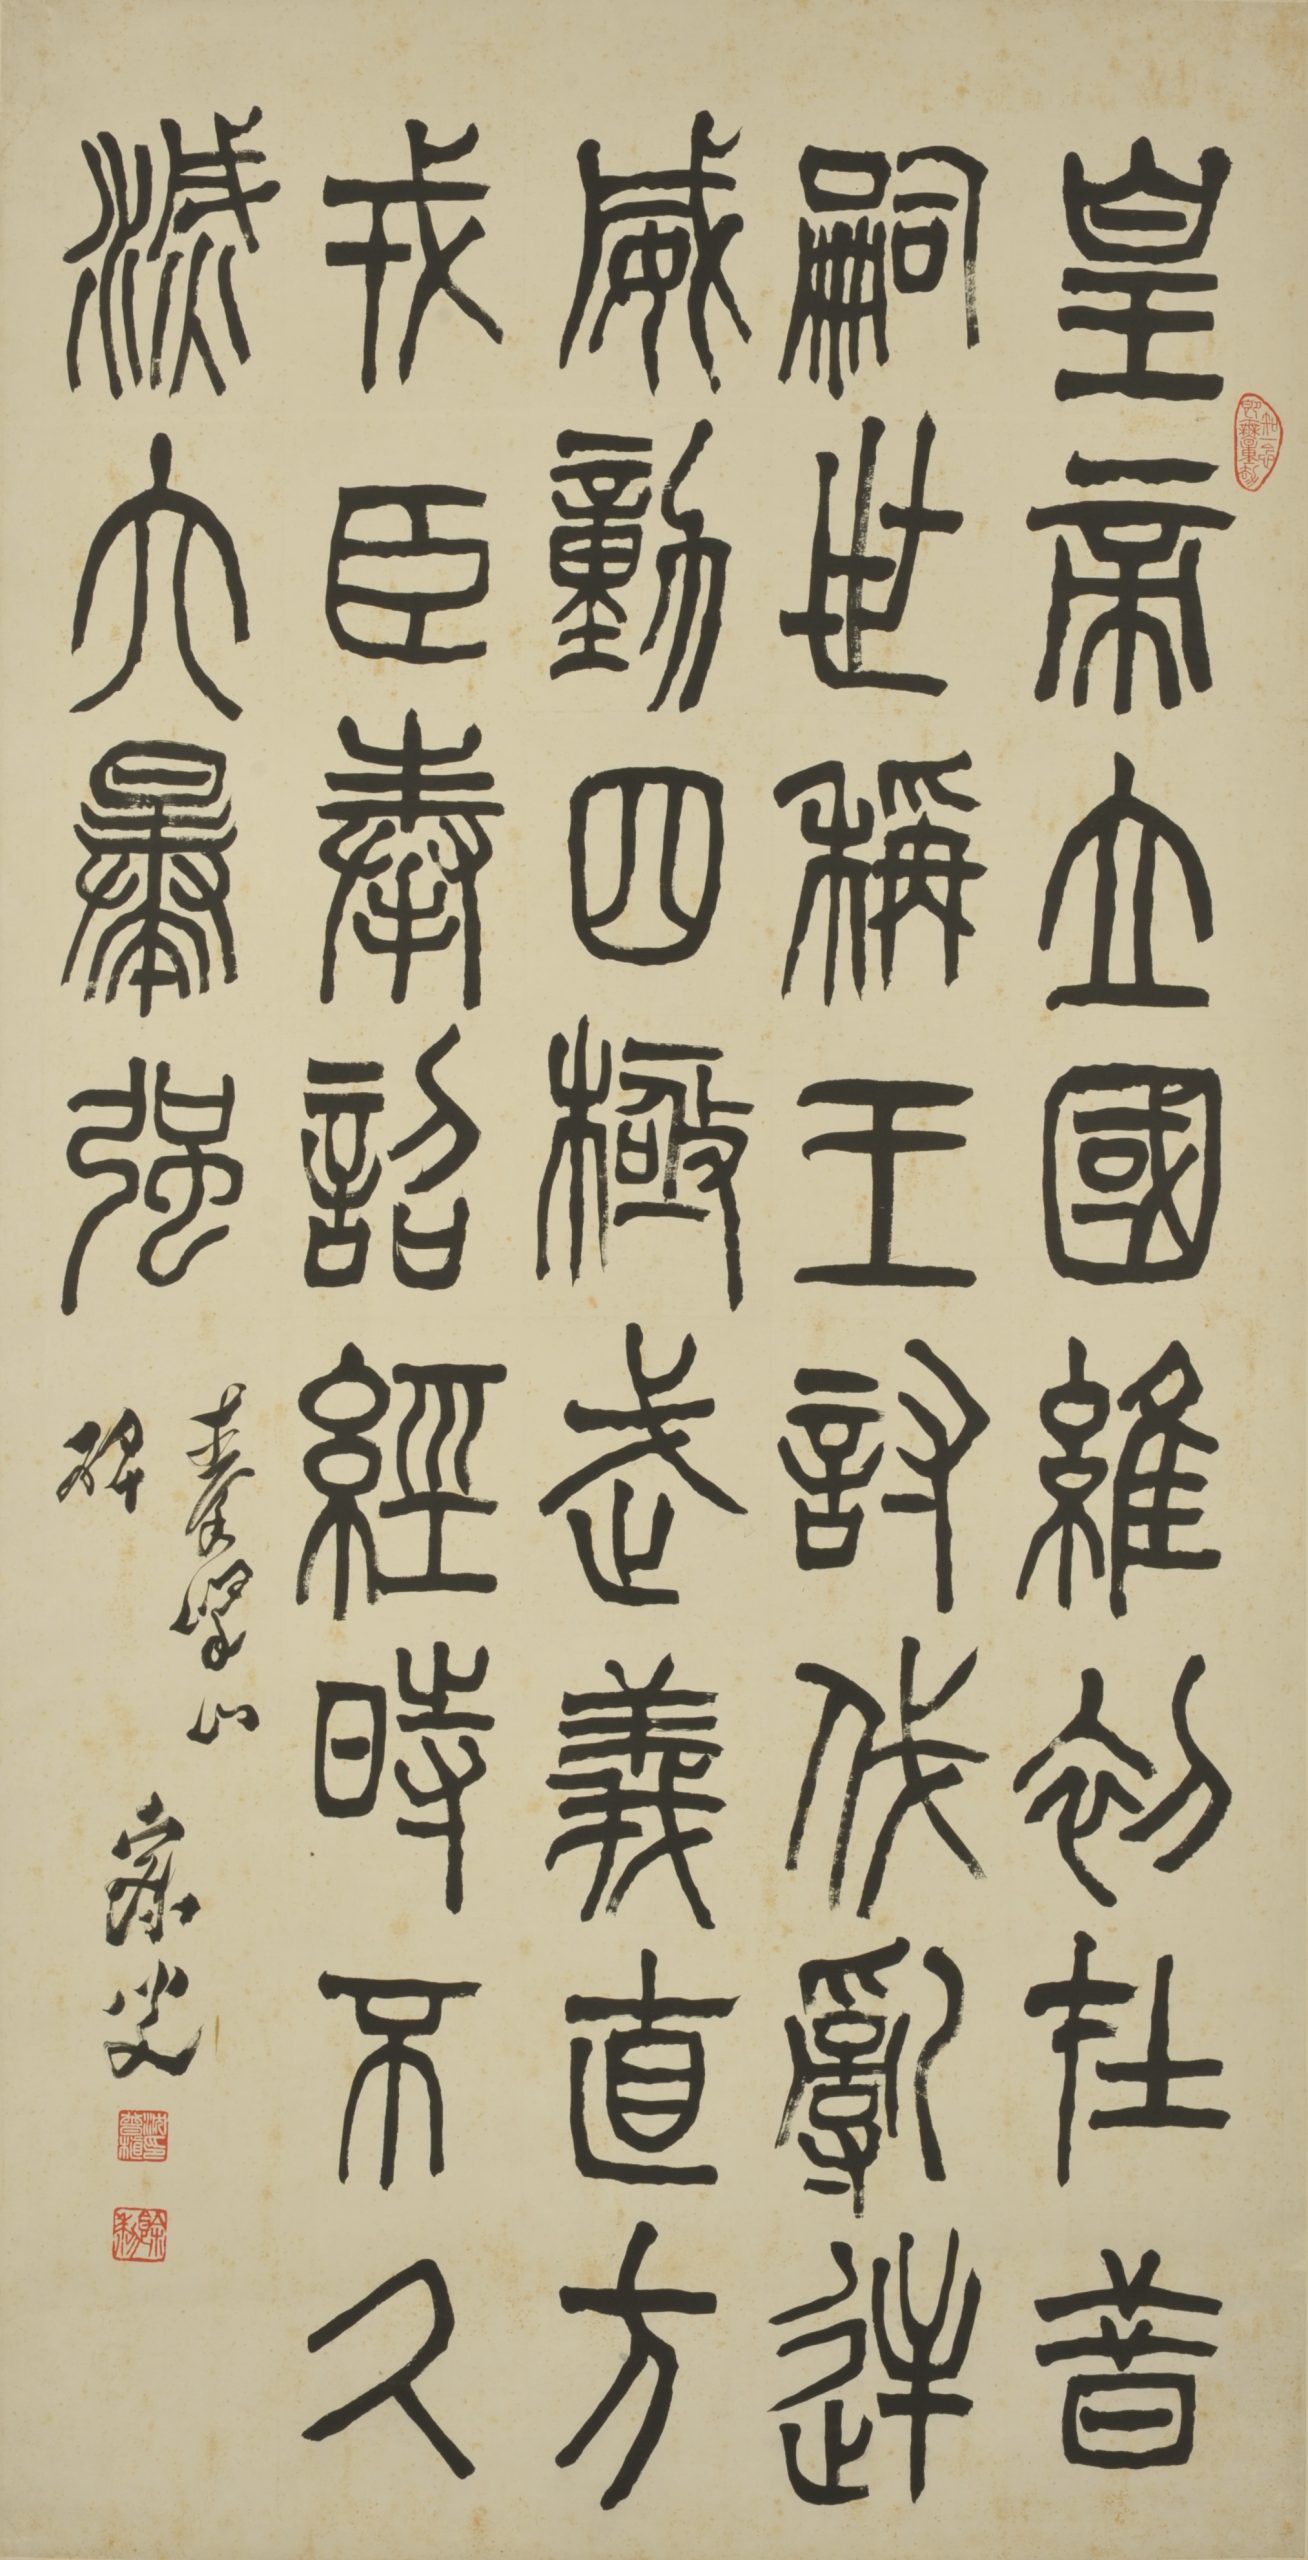 皇帝立國維初在昔
嗣世稱王討伐亂逆
威動四極武義直方
戎臣奉詔經時不久
滅六暴強
秦嶧山
碑
家叟